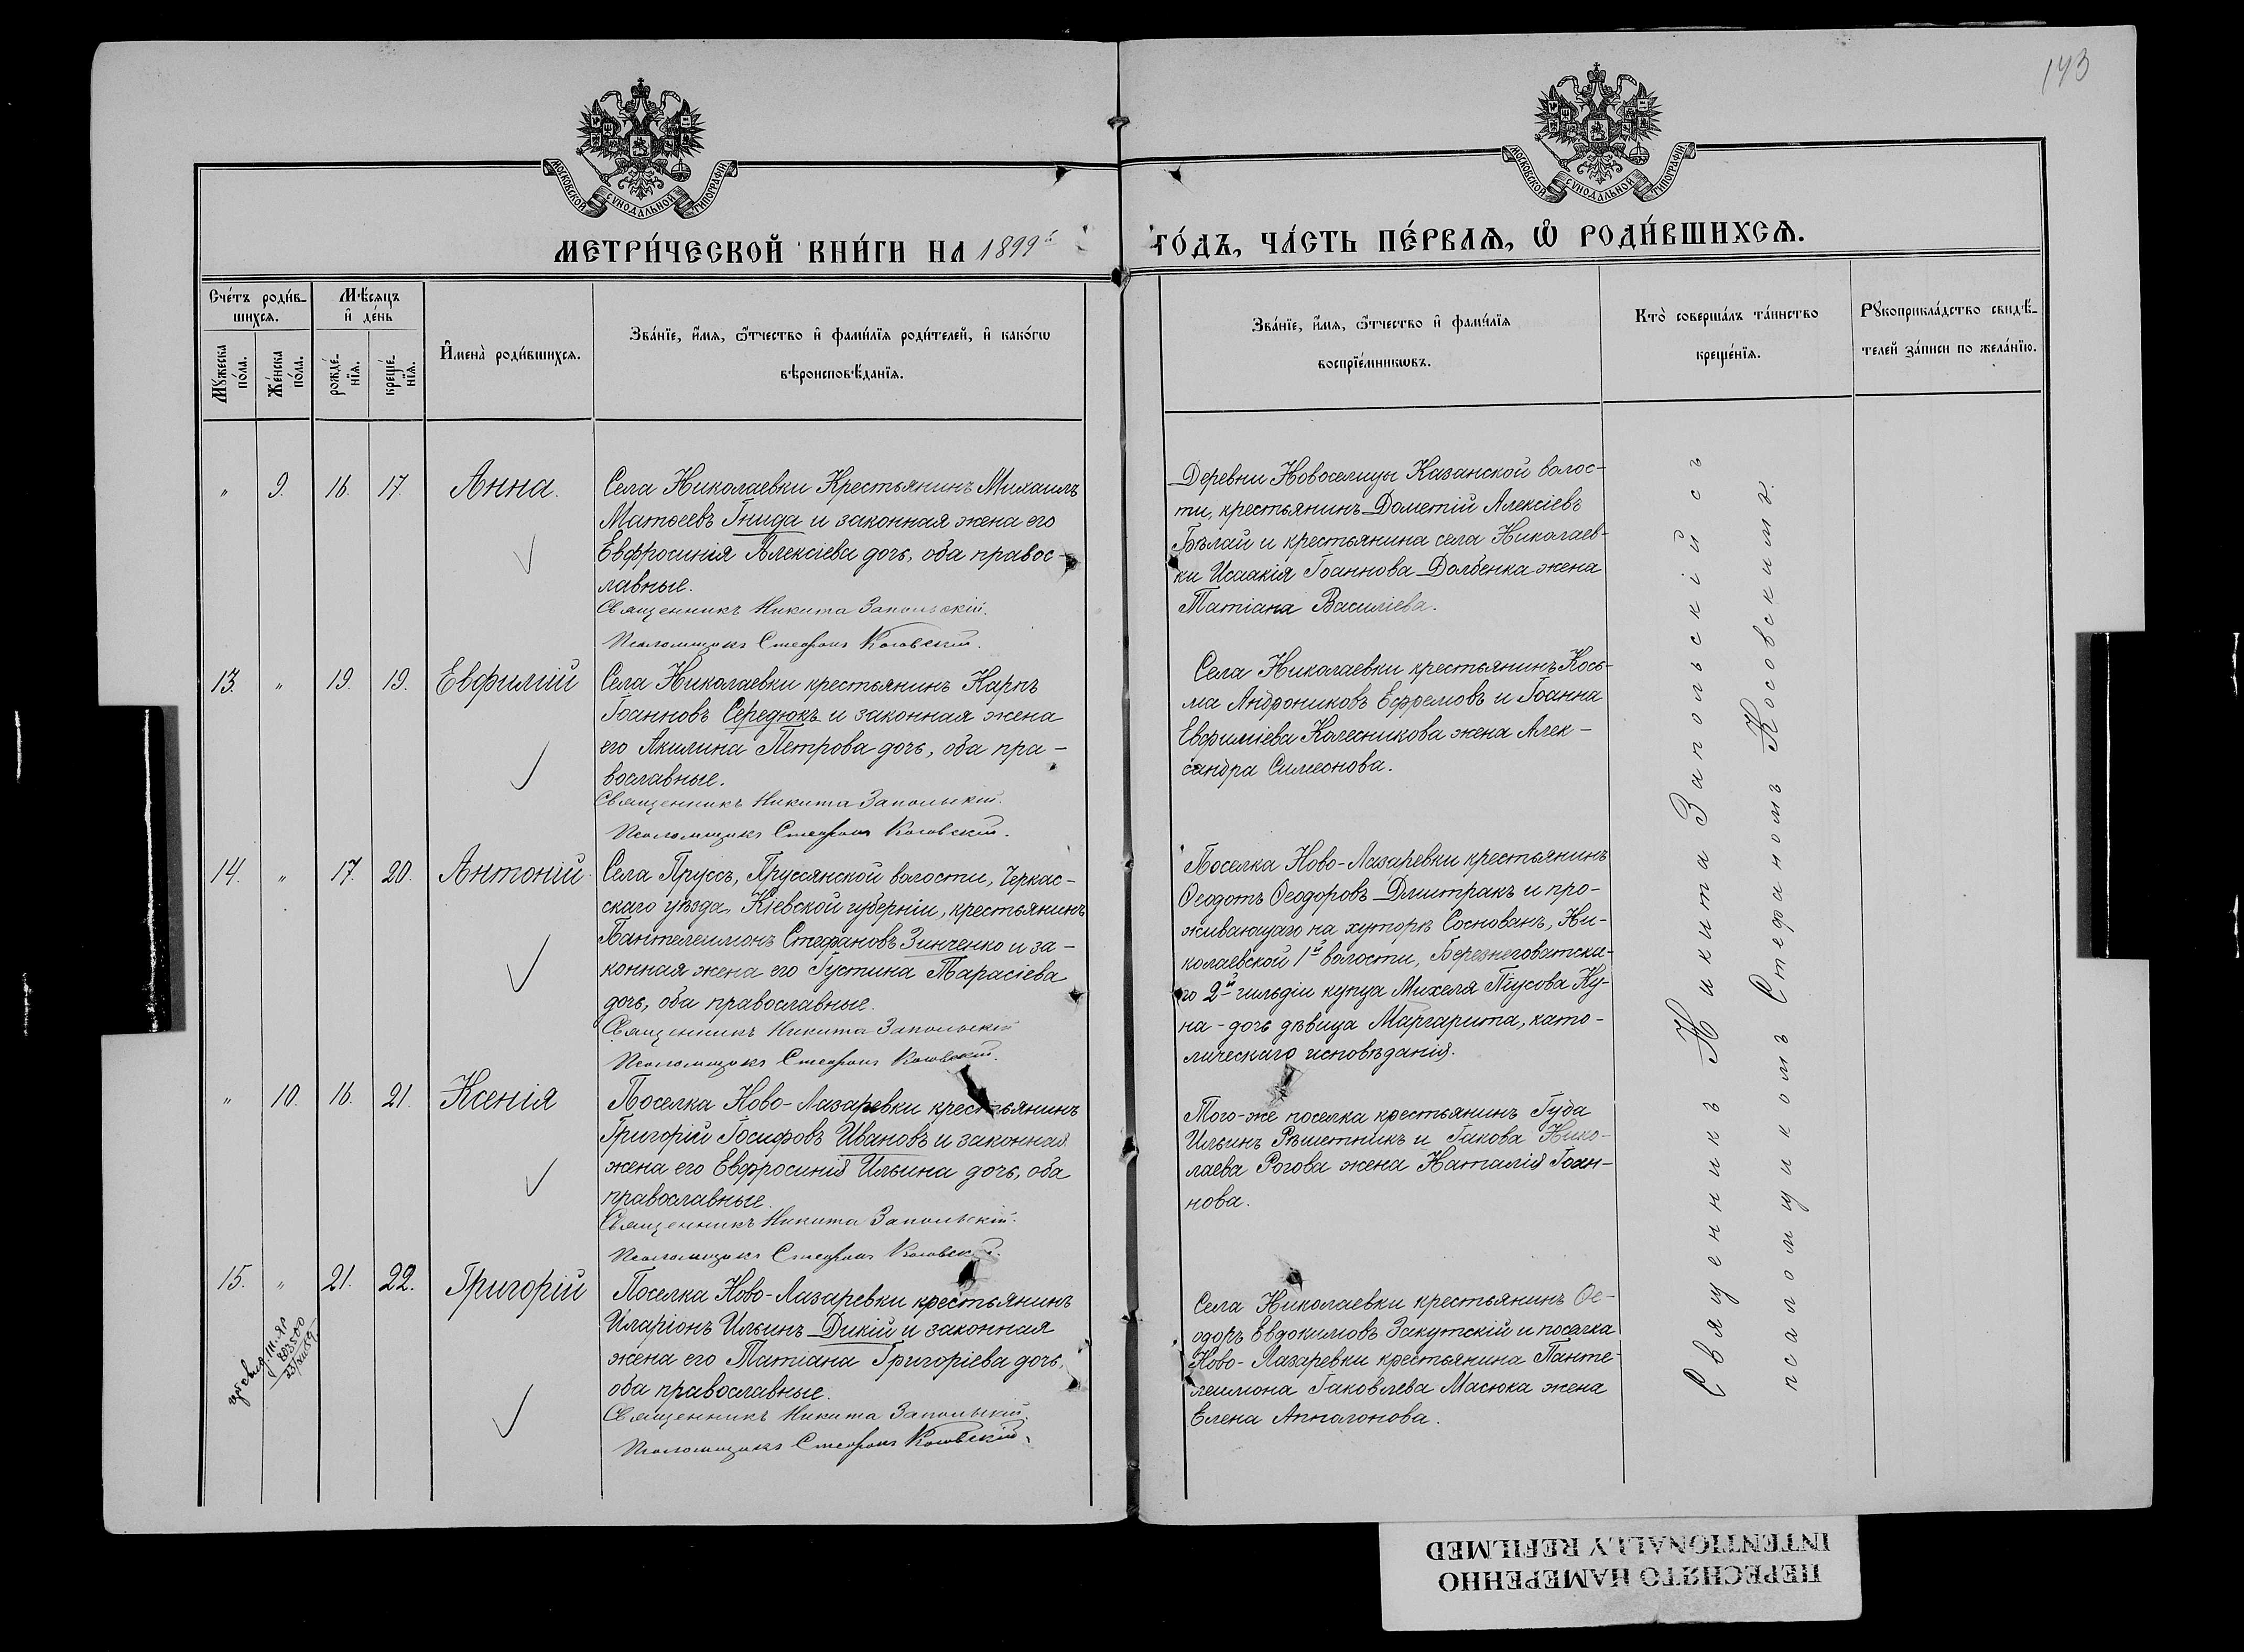 143
МОСКОВСКОЙ СѴНОДАЛЬНОЙ ТИПОГРАФІИ
МОСКОВСКОЙ СѴНОДАЛЬНОЙ ТИПОГРАФІИ
МЕТРИ́ЧЕСКОЙ КНИ́ГИ НА 1899й
ГО́ДЪ, ЧА́СТЬ ПЕ́РВАѦ, Ѡ РОДИ́ВШИХСѦ.
Сче́тъ роди́в-
шихсѧ.
Мѣ́сѧцъ
и҆ де́нь
Мꙋ́жеска
по́ла.
Же́нска
по́ла.
рожде́-
нїѧ.
креще́-
нїѧ.
И҆мена̀ роди́вшихсѧ.
Зва́нїе, и҆́мѧ, ѻ҆́тчество и҆ фами́лїѧ роди́телей, и҆ како́гѡ
вѣроисповѣ́данїѧ.
Зва́нїе, и҆́мѧ, ѻ҆́тчество и҆ фами́лїѧ
воспрїе́мникѡвъ.
Кто̀ соверша́лъ та́инство
креще́нїѧ.
Рꙋкоприкла́дство свидѣ́-
телей за́писи по жела́нїю.
" 9. 16. 17. Анна.
Села Николаевки Крестьянинъ Михаилъ
Матѳеевъ Гнида и законная жена его
Евфросинія Алексіева дочь, оба правос-
лавные.
Священникъ Никита Запольскій.
Псаломщикъ Стефанъ Косовскій.
Деревни Новоселицы Казанской волос-
ти, крестьянинъ Дометій Алексіевъ
Бѣлай и крестьянина села Николаев-
ки Исаакія Іоаннова Долбенка жена
Татіана Василіева.
13. " 19. 19. Евфимій
Села Николаевки крестьянинъ Карпъ
Іоанновъ Середюкъ и законная жена
его Акилина Петрова дочь, оба пра-
вославные.
Священникъ Никита Запольскій.
Псаломщикъ Стефанъ Косовскій.
Села Николаевки крестьянинъ Кось-
ма Андрониковъ Ефремовъ и Іоанна
Евфиміева Колесникова жена Алек-
сандра Симеонова.
14. " 17. 20. Антоній
Села Пруссъ, Пруссянской волости, Черкас-
скаго уѣзда, Кіевской губерніи, крестьянинъ
Пантелеимонъ Стефановъ Зинченко и за-
конная жена его Іустина Тарасіева
дочь, оба православные.
Священникъ Никита Запольскій
Псаломщикъ Стефанъ Косовскій.
Поселка Ново-Лазаревки крестьянинъ
Ѳеодотъ Ѳеодоровъ Дмитракъ и про-
живающаго на хуторѣ Соснованъ, Ни-
колаевской 1й волости, Березнеговатска-
го 2й гильдіи купца Михеля Піусова Ку-
на - дочь дѣвица Маргарита, като-
лическаго исповѣданія.
" 10. 16. 21. Ксенія
Поселка Ново-Лазаревки крестьянинъ
Григорій Іосифовъ Ивановъ и законная
жена его Евфросинія Ильина дочь, оба
православные.
Священникъ Никита Запольскій.
Псаломщикъ Стефанъ Косовскій.
Того-же поселка крестьянинъ Іуда
Ильинъ Рѣшетникъ и Іакова Нико-
лаева Рогова жена Наталія Іоан-
нова.
15. " 21. 22. Григорій
Поселка Ново-Лазаревки крестьянинъ
Иларіонъ Ильинъ Дикій и законная
жена его Татіана Григоріева дочь,
оба православные.
Священникъ Никита Запольскій.
Псаломщикъ Стефанъ Косовскій.
Села Николаевки крестьянинъ Ѳе-
одоръ Евдокимовъ Закутскій и поселка
Ново-Лазаревки крестьянина Панте-
леимона Іаковлева Масюка жена
Елена Апполонова.
Священникъ Никита Запольскій съ
псаломщикомъ Стефаномъ Косовскимъ.
ПЕРЕСНЯТО НАМЕРЕННО
INTENTIONALLY REFILMED